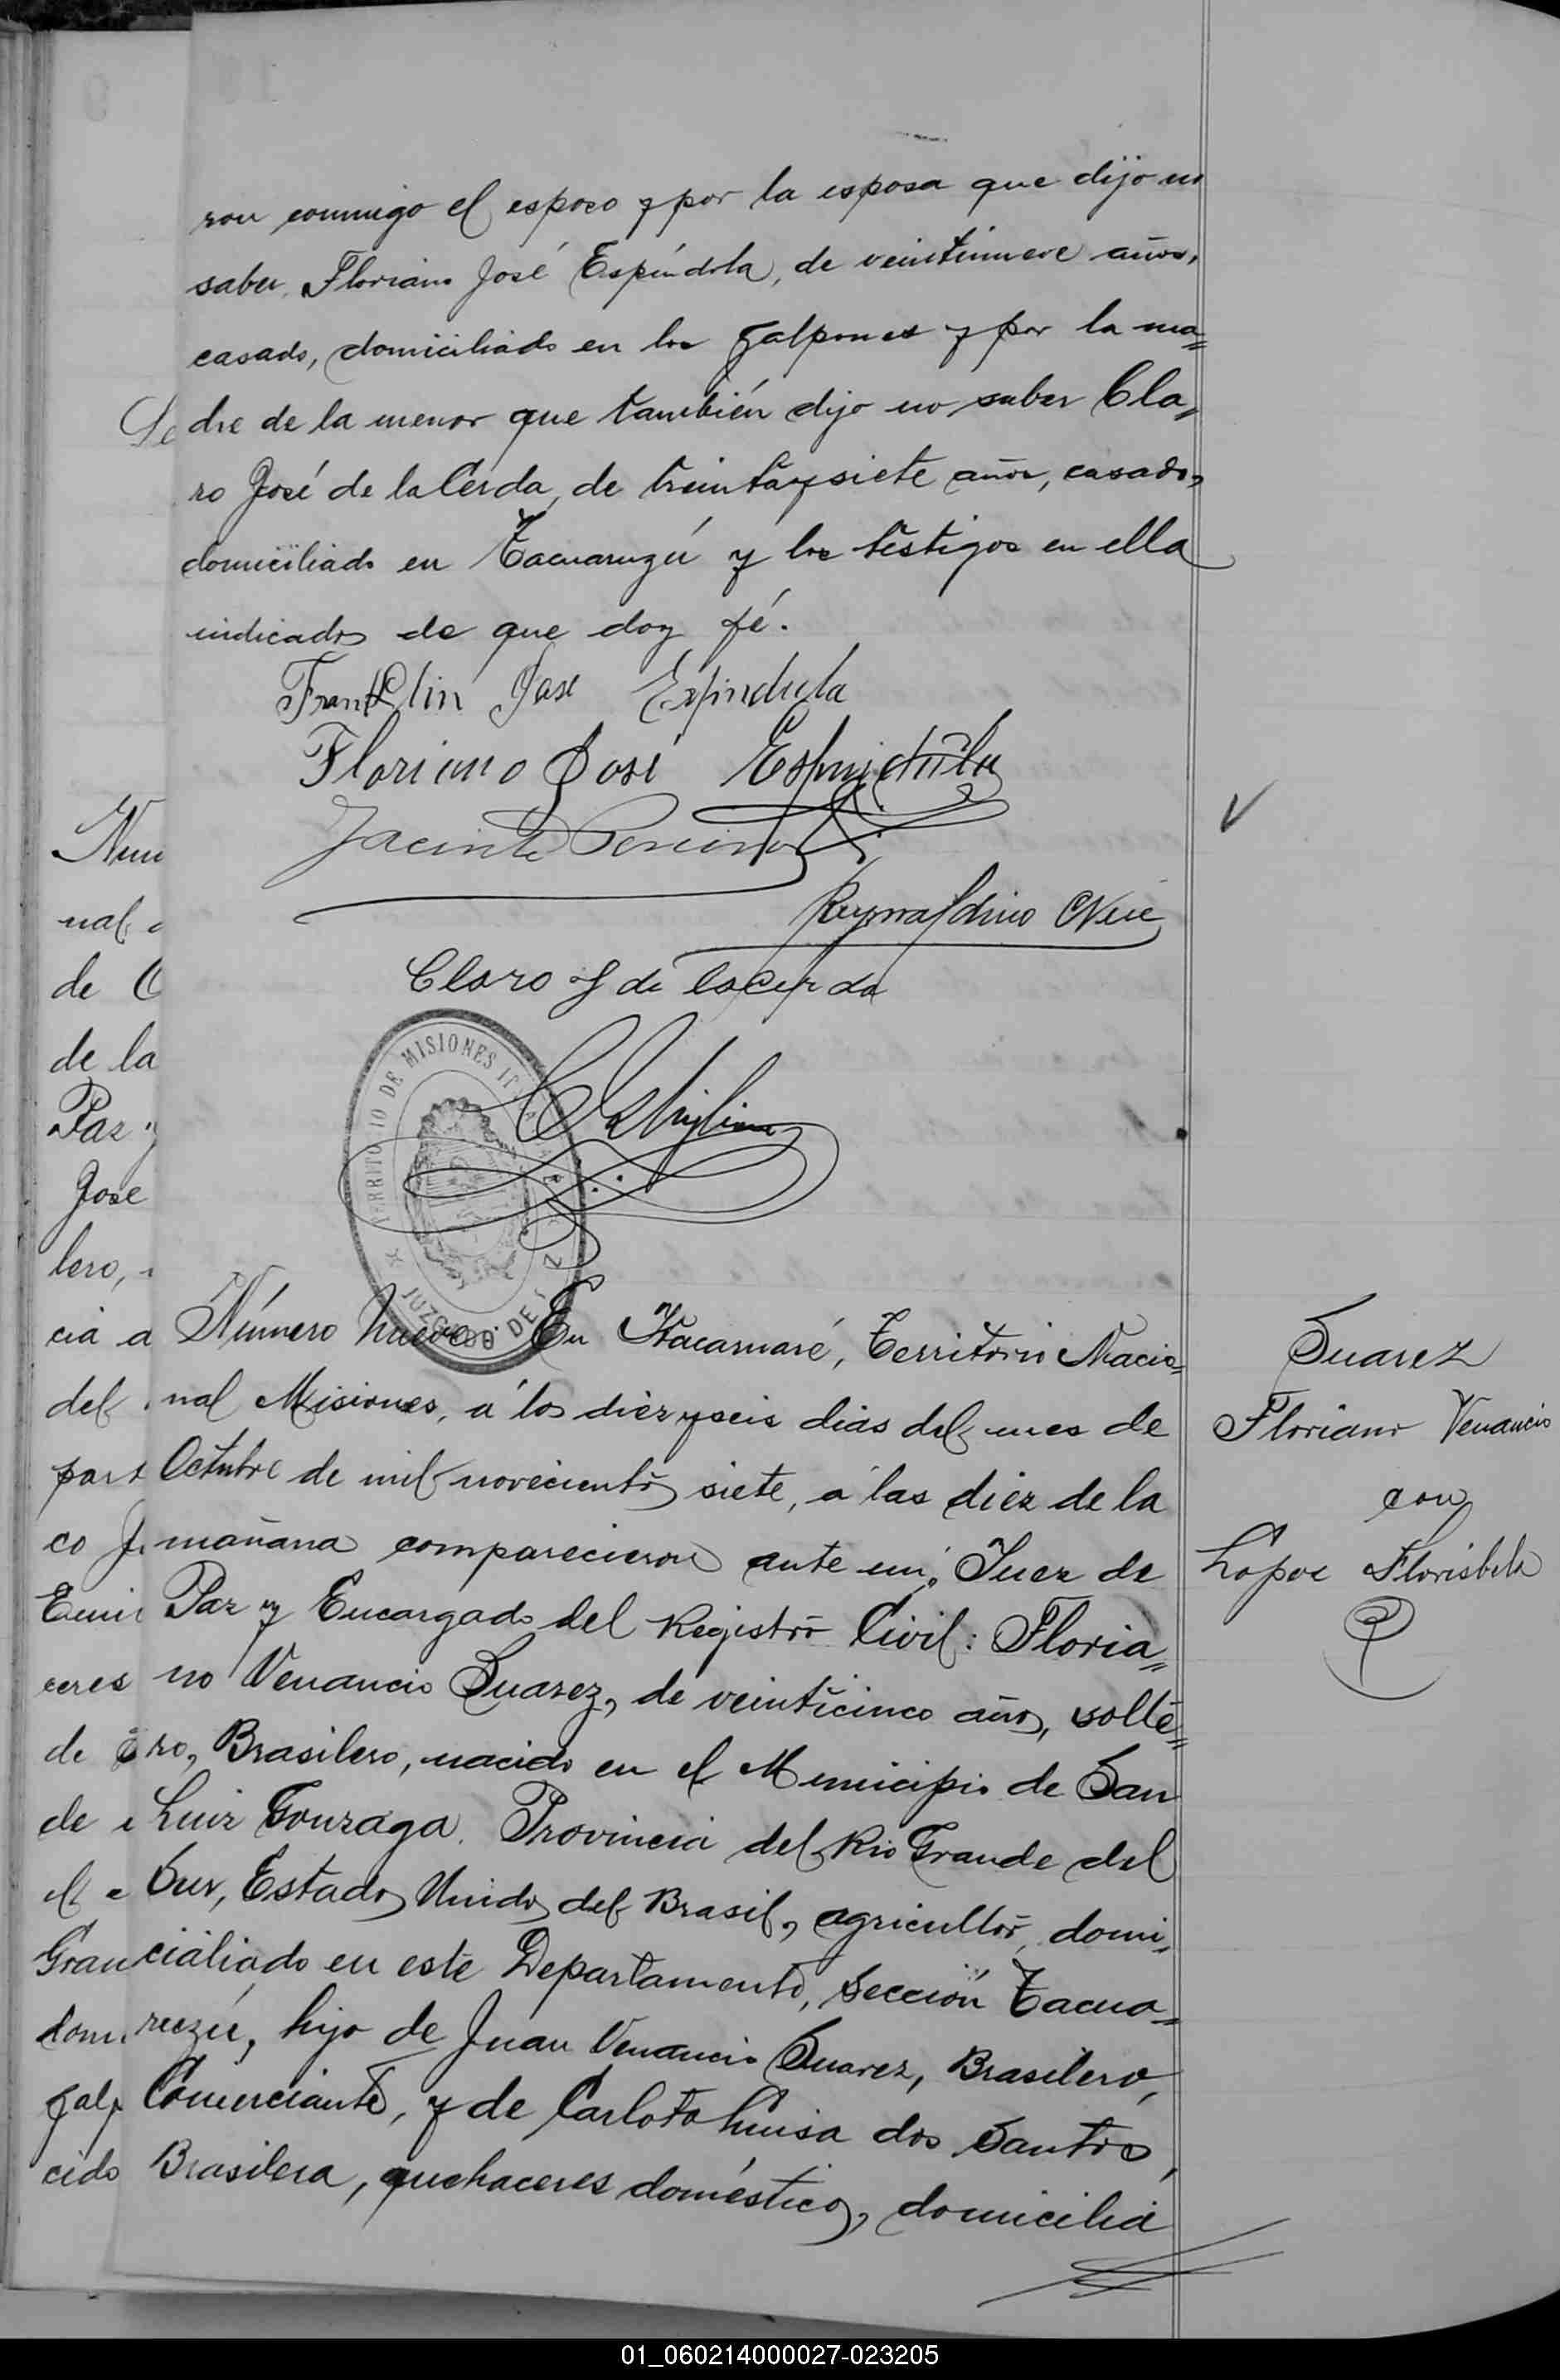 ron conmigo el esposo y por la esposa que dijo no
saber, Floriano José Espíndola, de veintinueve años,
casado, domiciliado en los galpones y por la ma=
dre de la menor que también dijo no saber Cla=
ro José de la Cerda, de treinta y siete años, casado,
domiciliado en Tacuaruzú y los testigos en ella
indicados de que doy fé.
Franklin Jose Espindula
Floriano José Espindula
Jacinto
Reynaldino
Claro J de laCerda
TERRITORIO DE MISIONES
JUZGADO DE PAZ
Número Nueve: En Itacaruaré, Territorio Nacio=
nal Misiones, á los diez y seis dias del mes de
Octubre de mil novecientos siete, á las diez de la
mañana comparecieron ante mí, Juez de
Paz y Encargado del Registro Civil: Floria=
no Venancio Suarez, de veinticinco años, solte=
ro, Brasilero, nacido en el Municipio de San
Luiz Gonzaga. Provincia del Rio Grande del
Sur, Estados Unidos del Brasil, agricultor, domi=
ciliado en este Departamento, Sección Tacua=
ruzú, hijo de Juan Venancio Suarez, Brasilero,
Comerciante, y de Carlota Luisa dos Santos,
Brasilera, quehaceres domésticos, domicilia
Suarez
Floriano Venancio
con
Lopez Florisbela
Num
nal
de O
de la
Paz y
José
lero,
cia a
del
part
co J
ceres
de
de
el
Gran
dom
galp
cido
01_060214000027-023205